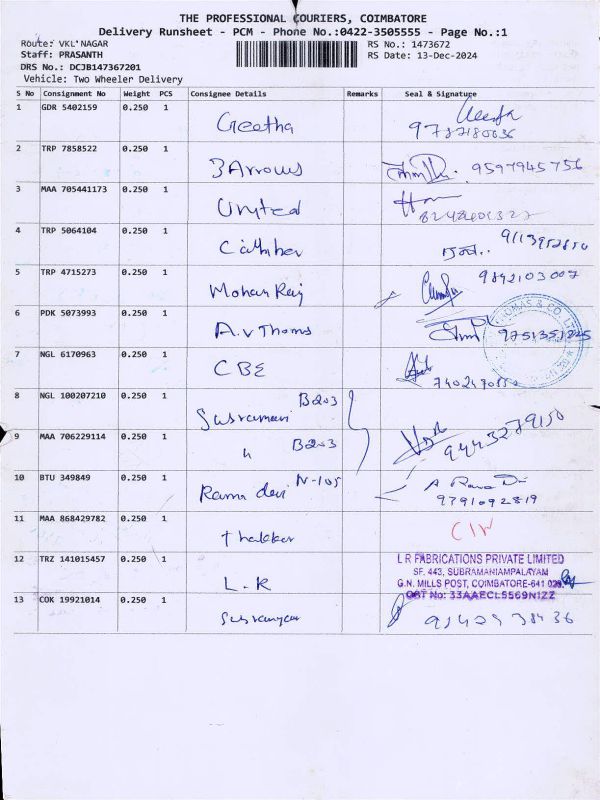 THE PROFESSIONAL COURIERS, COIMBATORE
Delivery Runsheet - PCM - Phone No.:0422-3505555 - Page No.:1
Route: VKL'NAGAR RS No.: 1473672
Staff: PRASANTH RS Date: 13-Dec-2024
DRS No.: DCJB147367201
Vehicle: Two Wheeler Delivery
S No Consignment No Weight PCS Consignee Details Remarks Seal & Signature
1 GDR 5402159 0.250 1 Geetha
2 TRP 7858522 0.250 1 3 Arrows 9597945756
3 MAA 705441173 0.250 1 United
4 TRP 5064104 0.250 1
5 TRP 4715273 0.250 1 Mohan Raj 9842103007
6 PDK 5073993 0.250 1 A.V Thoms
THOMAS & CO.
7 NGL 6170963 0.250 1 CBE
8 NGL 100207210 0.250 1 B203
9 MAA 706229114 0.250 1 " B203 9443279150
10 BTU 349849 0.250 1 Rama devi N-105
9791092819
11 MAA 868429782 0.250 1 Thakkar
12 TRZ 141015457 0.250 1 L.R
L R FABRICATIONS PRIVATE LIMITED
SF. 443, SUBRAMANIAMPALAYAM
G.N. MILLS POST, COIMBATORE-641 029.
GST No: 33AAECL5569N1ZZ
13 COK 19921014 0.250 1